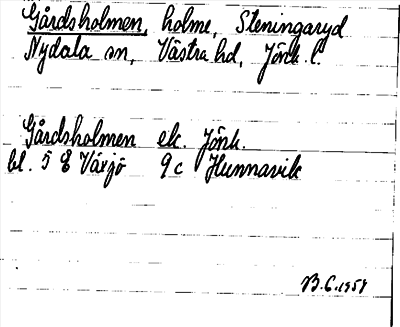 Gårdsholmen, holme, Steningaryd
Nydala sn, Västra hd, Jönk. l.
Gårdsholmen ek. Jönk.
bl. 5 E Växjö 9 c Hunnavik
B.C. 1958